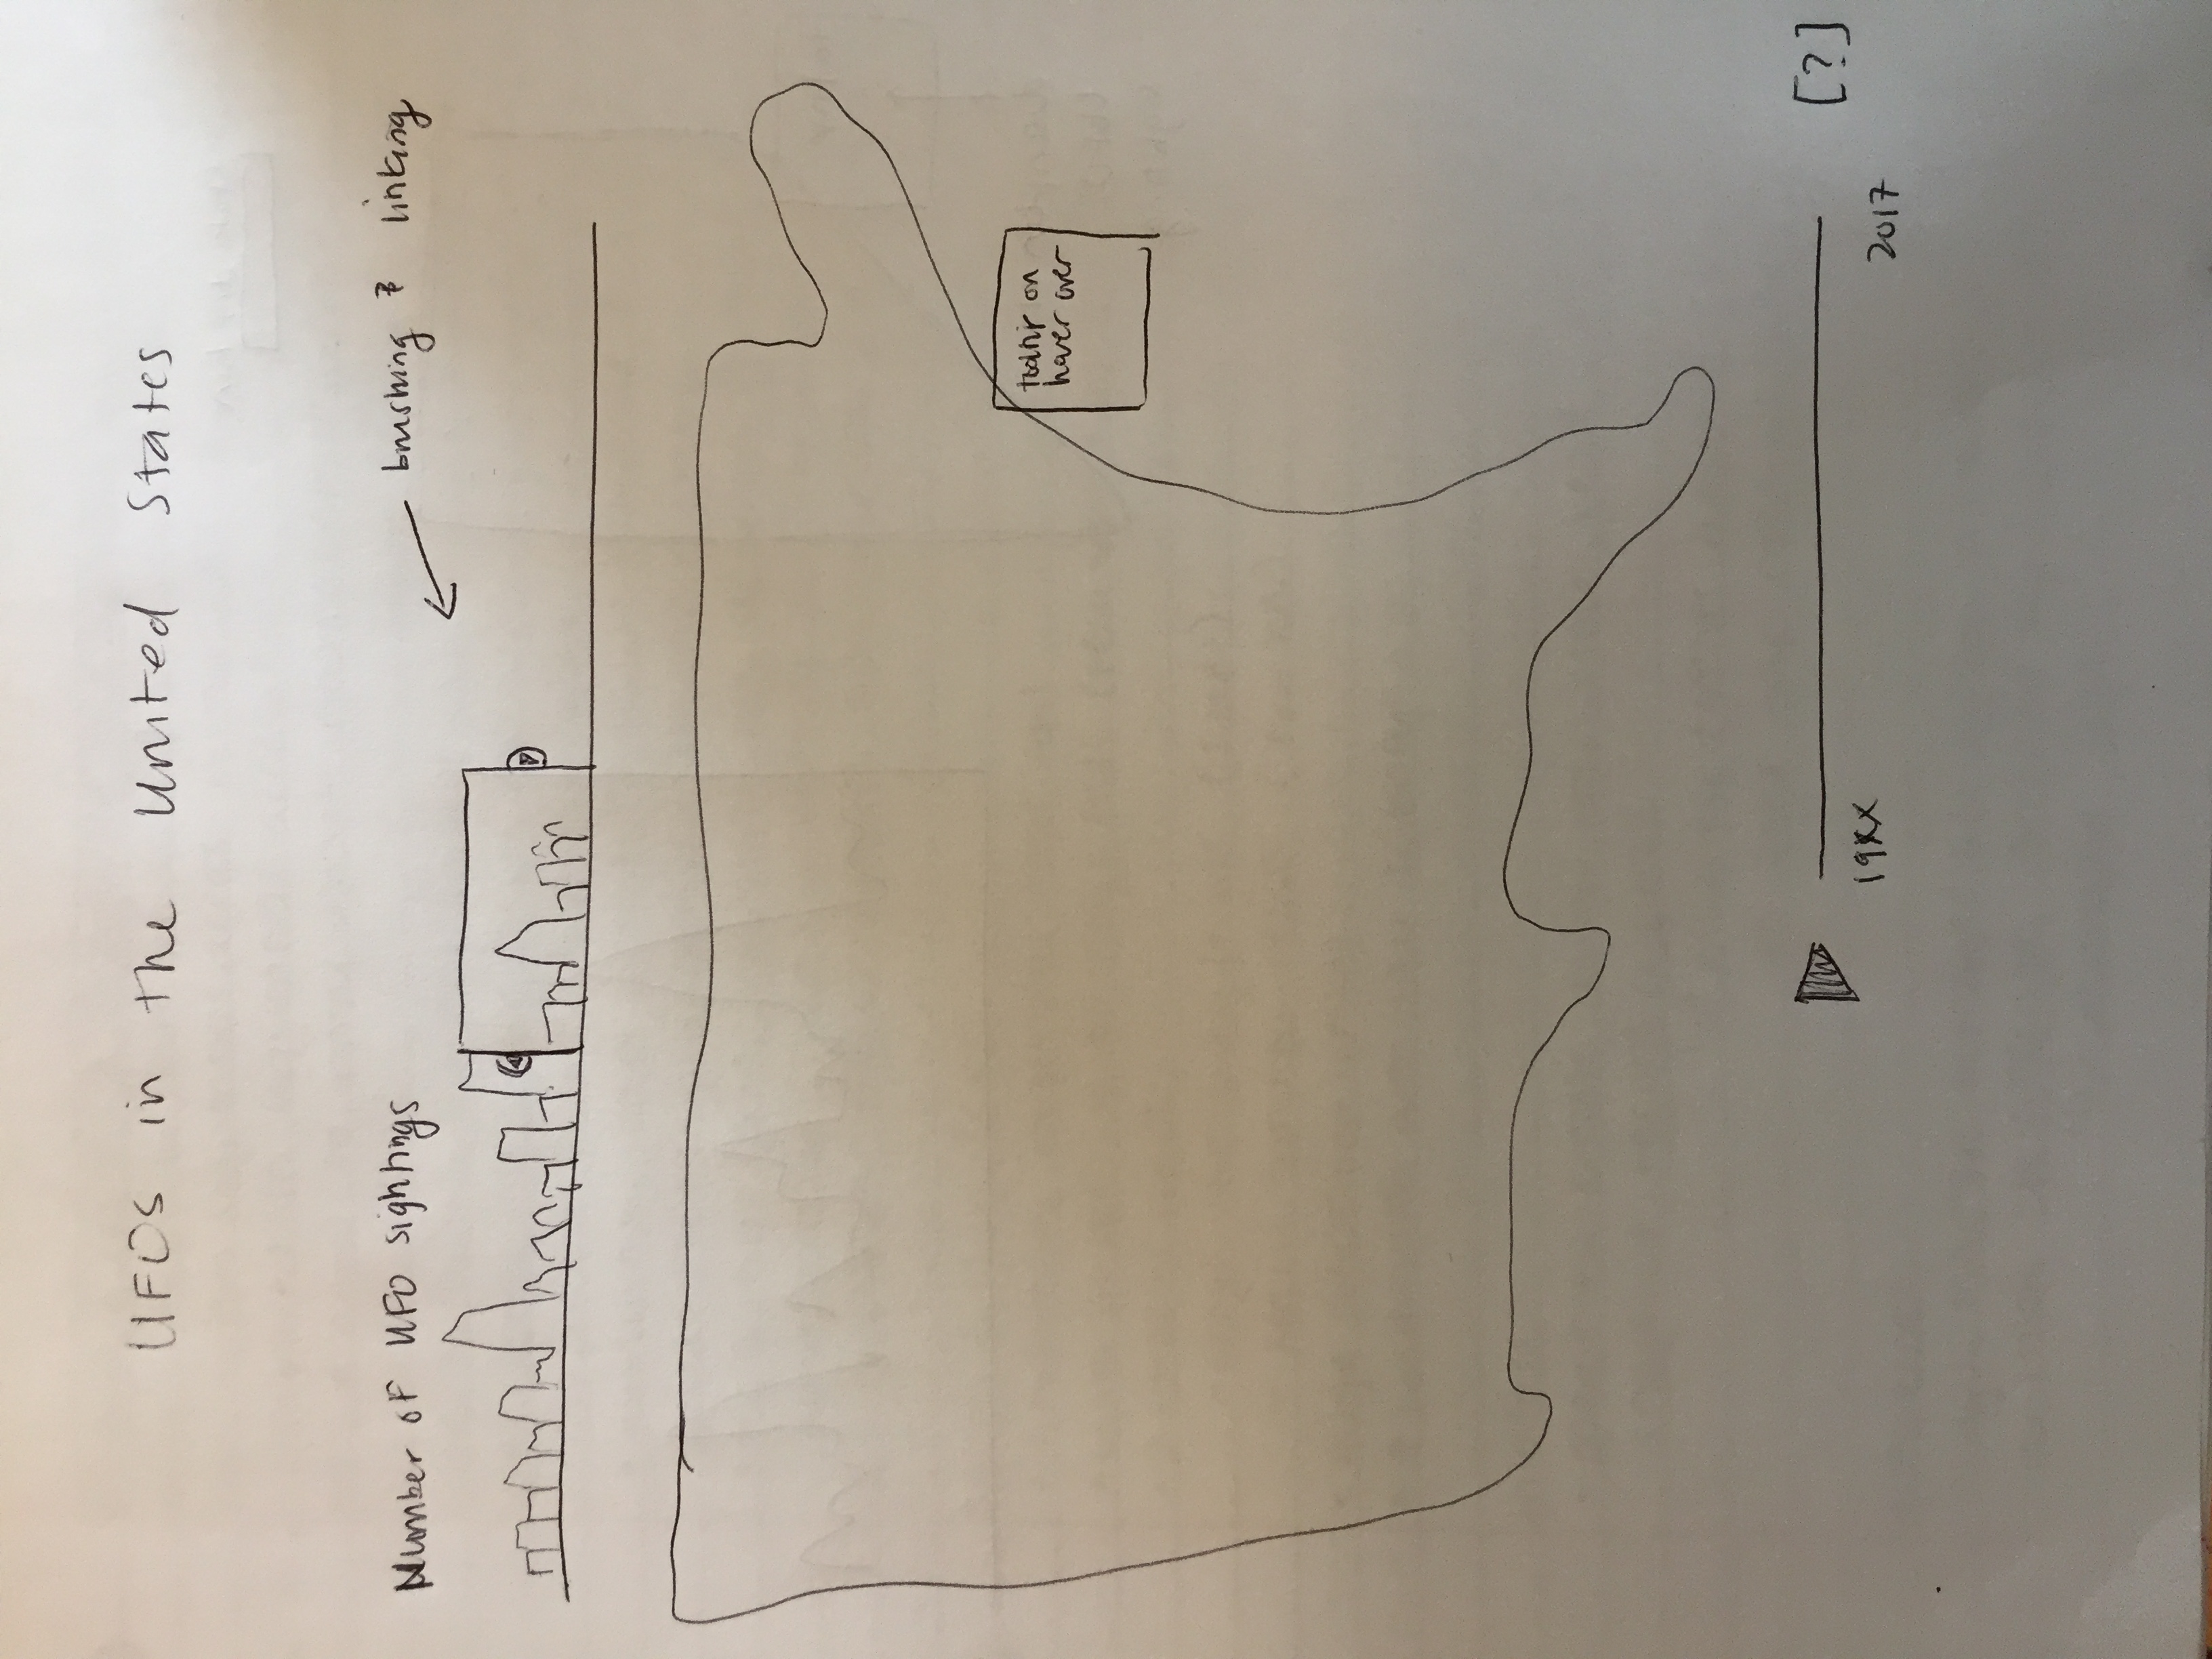 UFOs in the United States
Number of UFO sightings
brushing & linking
tooltip on
hover over
19XX
2017
[?]